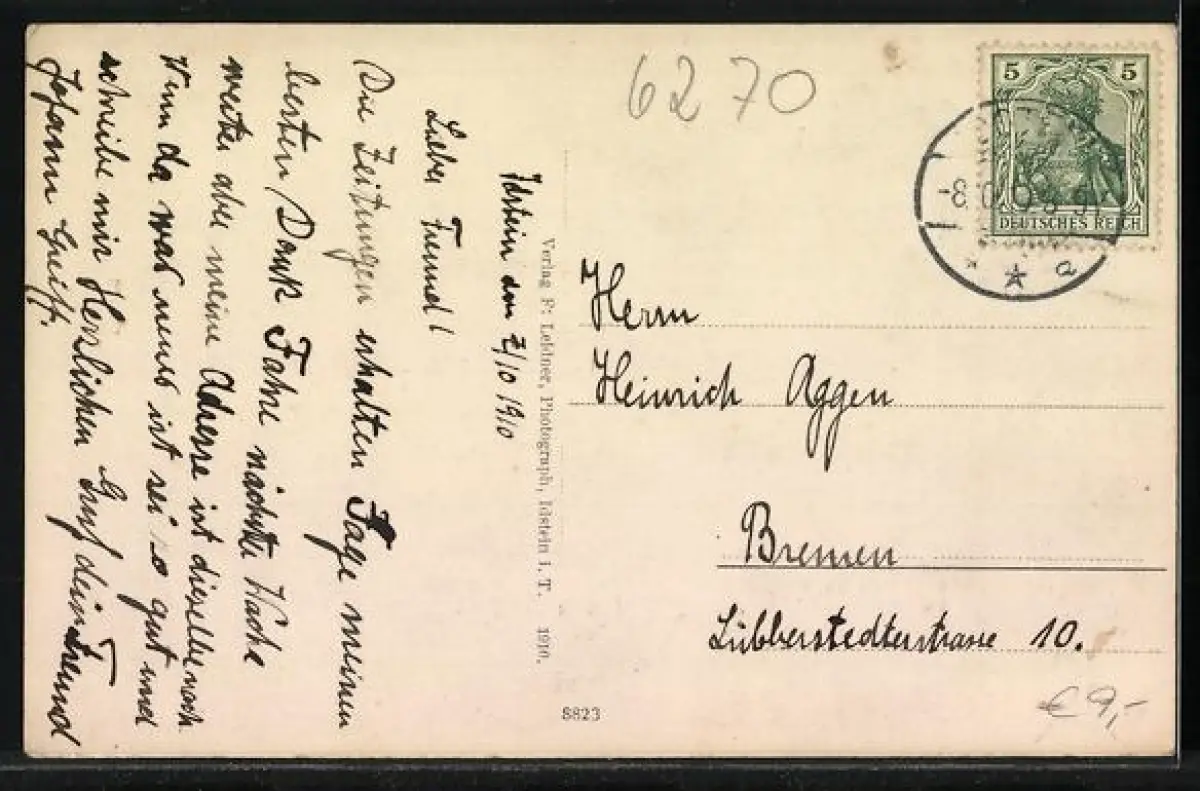 Idstein den 7/10 1910
Lieber Freund!
Die Zeitungen erhalten Sage meinen
besten Dank Fahre nächste Woche
weiter aber meine Adresse ist dieselbe noch
Wenn da was neues ist sei so gut und
schreibe mir Herzlichen Gruß dein Freund
Johann Greiff.
Verlag F. Leldner, Photograph, Idstein i. T. 1910.
8823
6270
5 5
DEUTSCHES REICH
* * a
Herrn
Heinrich Aggen
Bremen
Lübberstedterstrasse 10.
€ 9,-